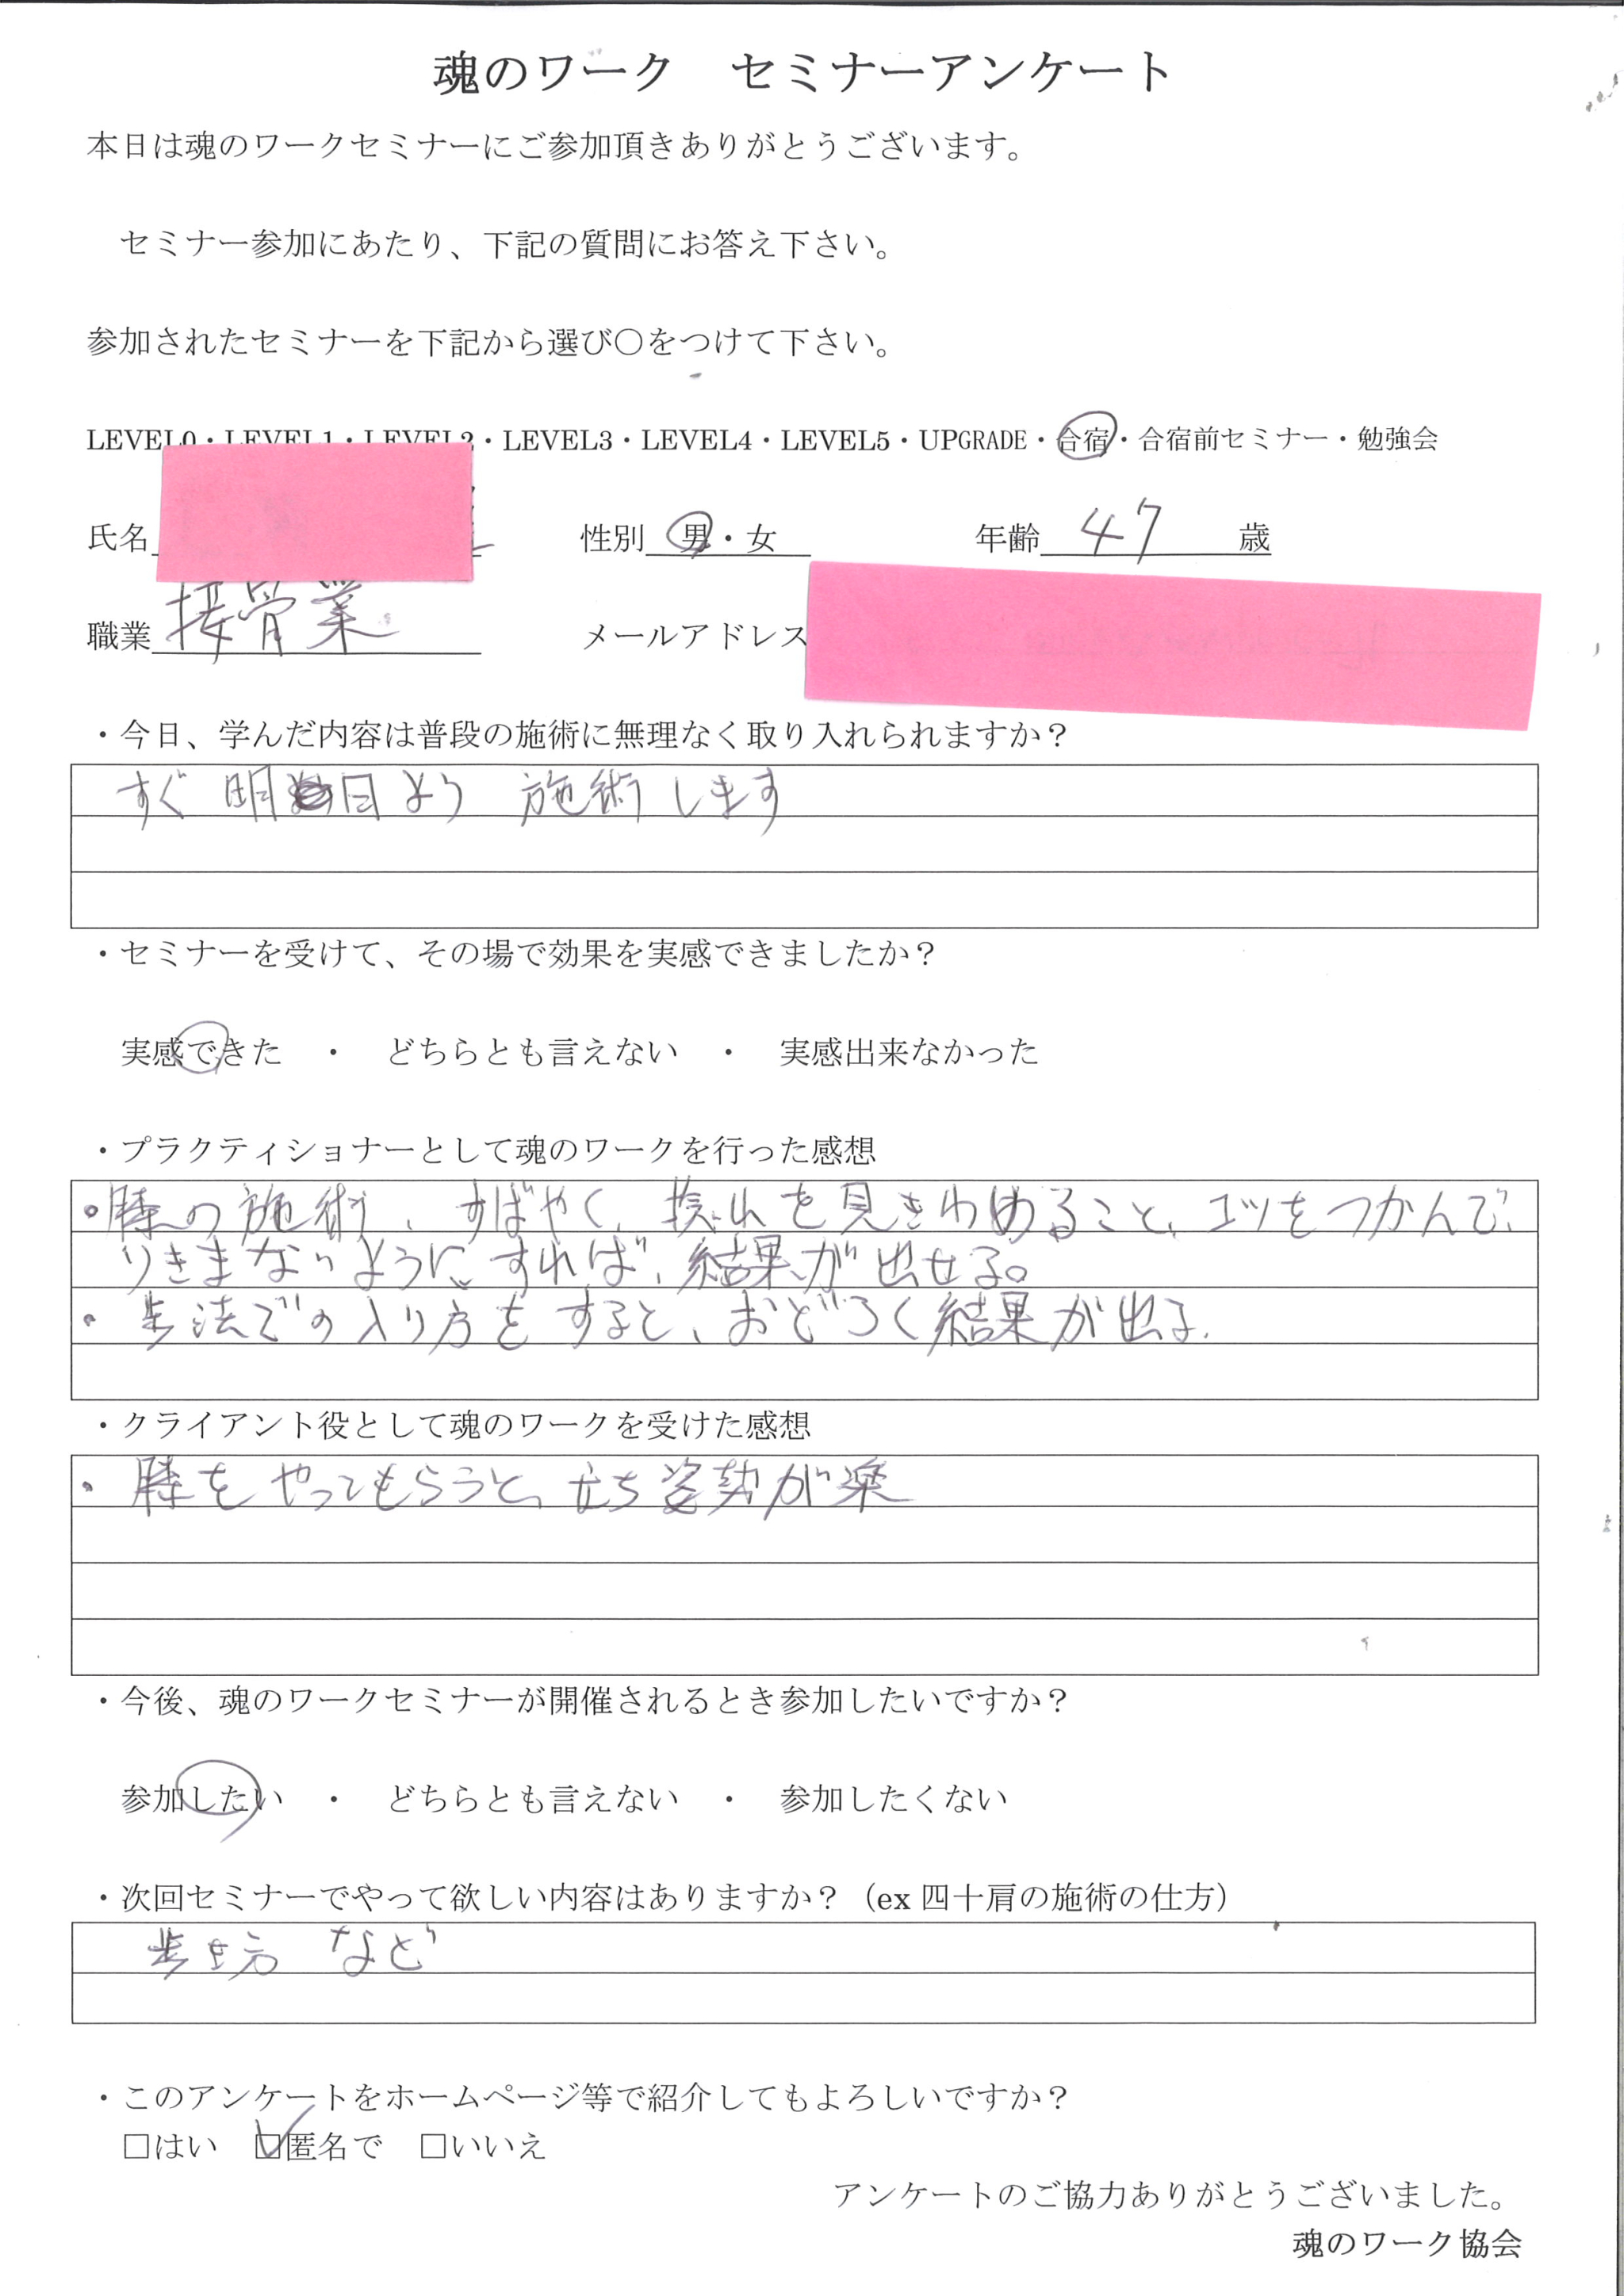 魂のワーク　セミナーアンケート
本日は魂のワークセミナーにご参加頂きありがとうございます。
セミナー参加にあたり、下記の質問にお答え下さい。
参加されたセミナーを下記から選び〇をつけて下さい。
LEVEL0・LEVEL1・LEVEL2・LEVEL3・LEVEL4・LEVEL5・UPGRADE・合宿・合宿前セミナー・勉強会
氏名　性別　男・女　年齢　47　歳
職業　接骨業　メールアドレス
・今日、学んだ内容は普段の施術に無理なく取り入れられますか？
すぐ明日より　施術します
・セミナーを受けて、その場で効果を実感できましたか？
実感できた　・　どちらとも言えない　・　実感出来なかった
・プラクティショナーとして魂のワークを行った感想
。膝の施術、すばやく、捩れを見きわめること、コツをつかんで、
りきまないようにすれば、結果が出せる。
・歩法での入り方をすると、おどろく結果が出る.
・クライアント役として魂のワークを受けた感想
・膝をやってもらうと、立ち姿勢が楽
・今後、魂のワークセミナーが開催されるとき参加したいですか？
参加したい　・　どちらとも言えない　・　参加したくない
・次回セミナーでやって欲しい内容はありますか？（ex 四十肩の施術の仕方）
歩き方　など
・このアンケートをホームページ等で紹介してもよろしいですか？
□はい　☑匿名で　□いいえ
アンケートのご協力ありがとうございました。
魂のワーク協会